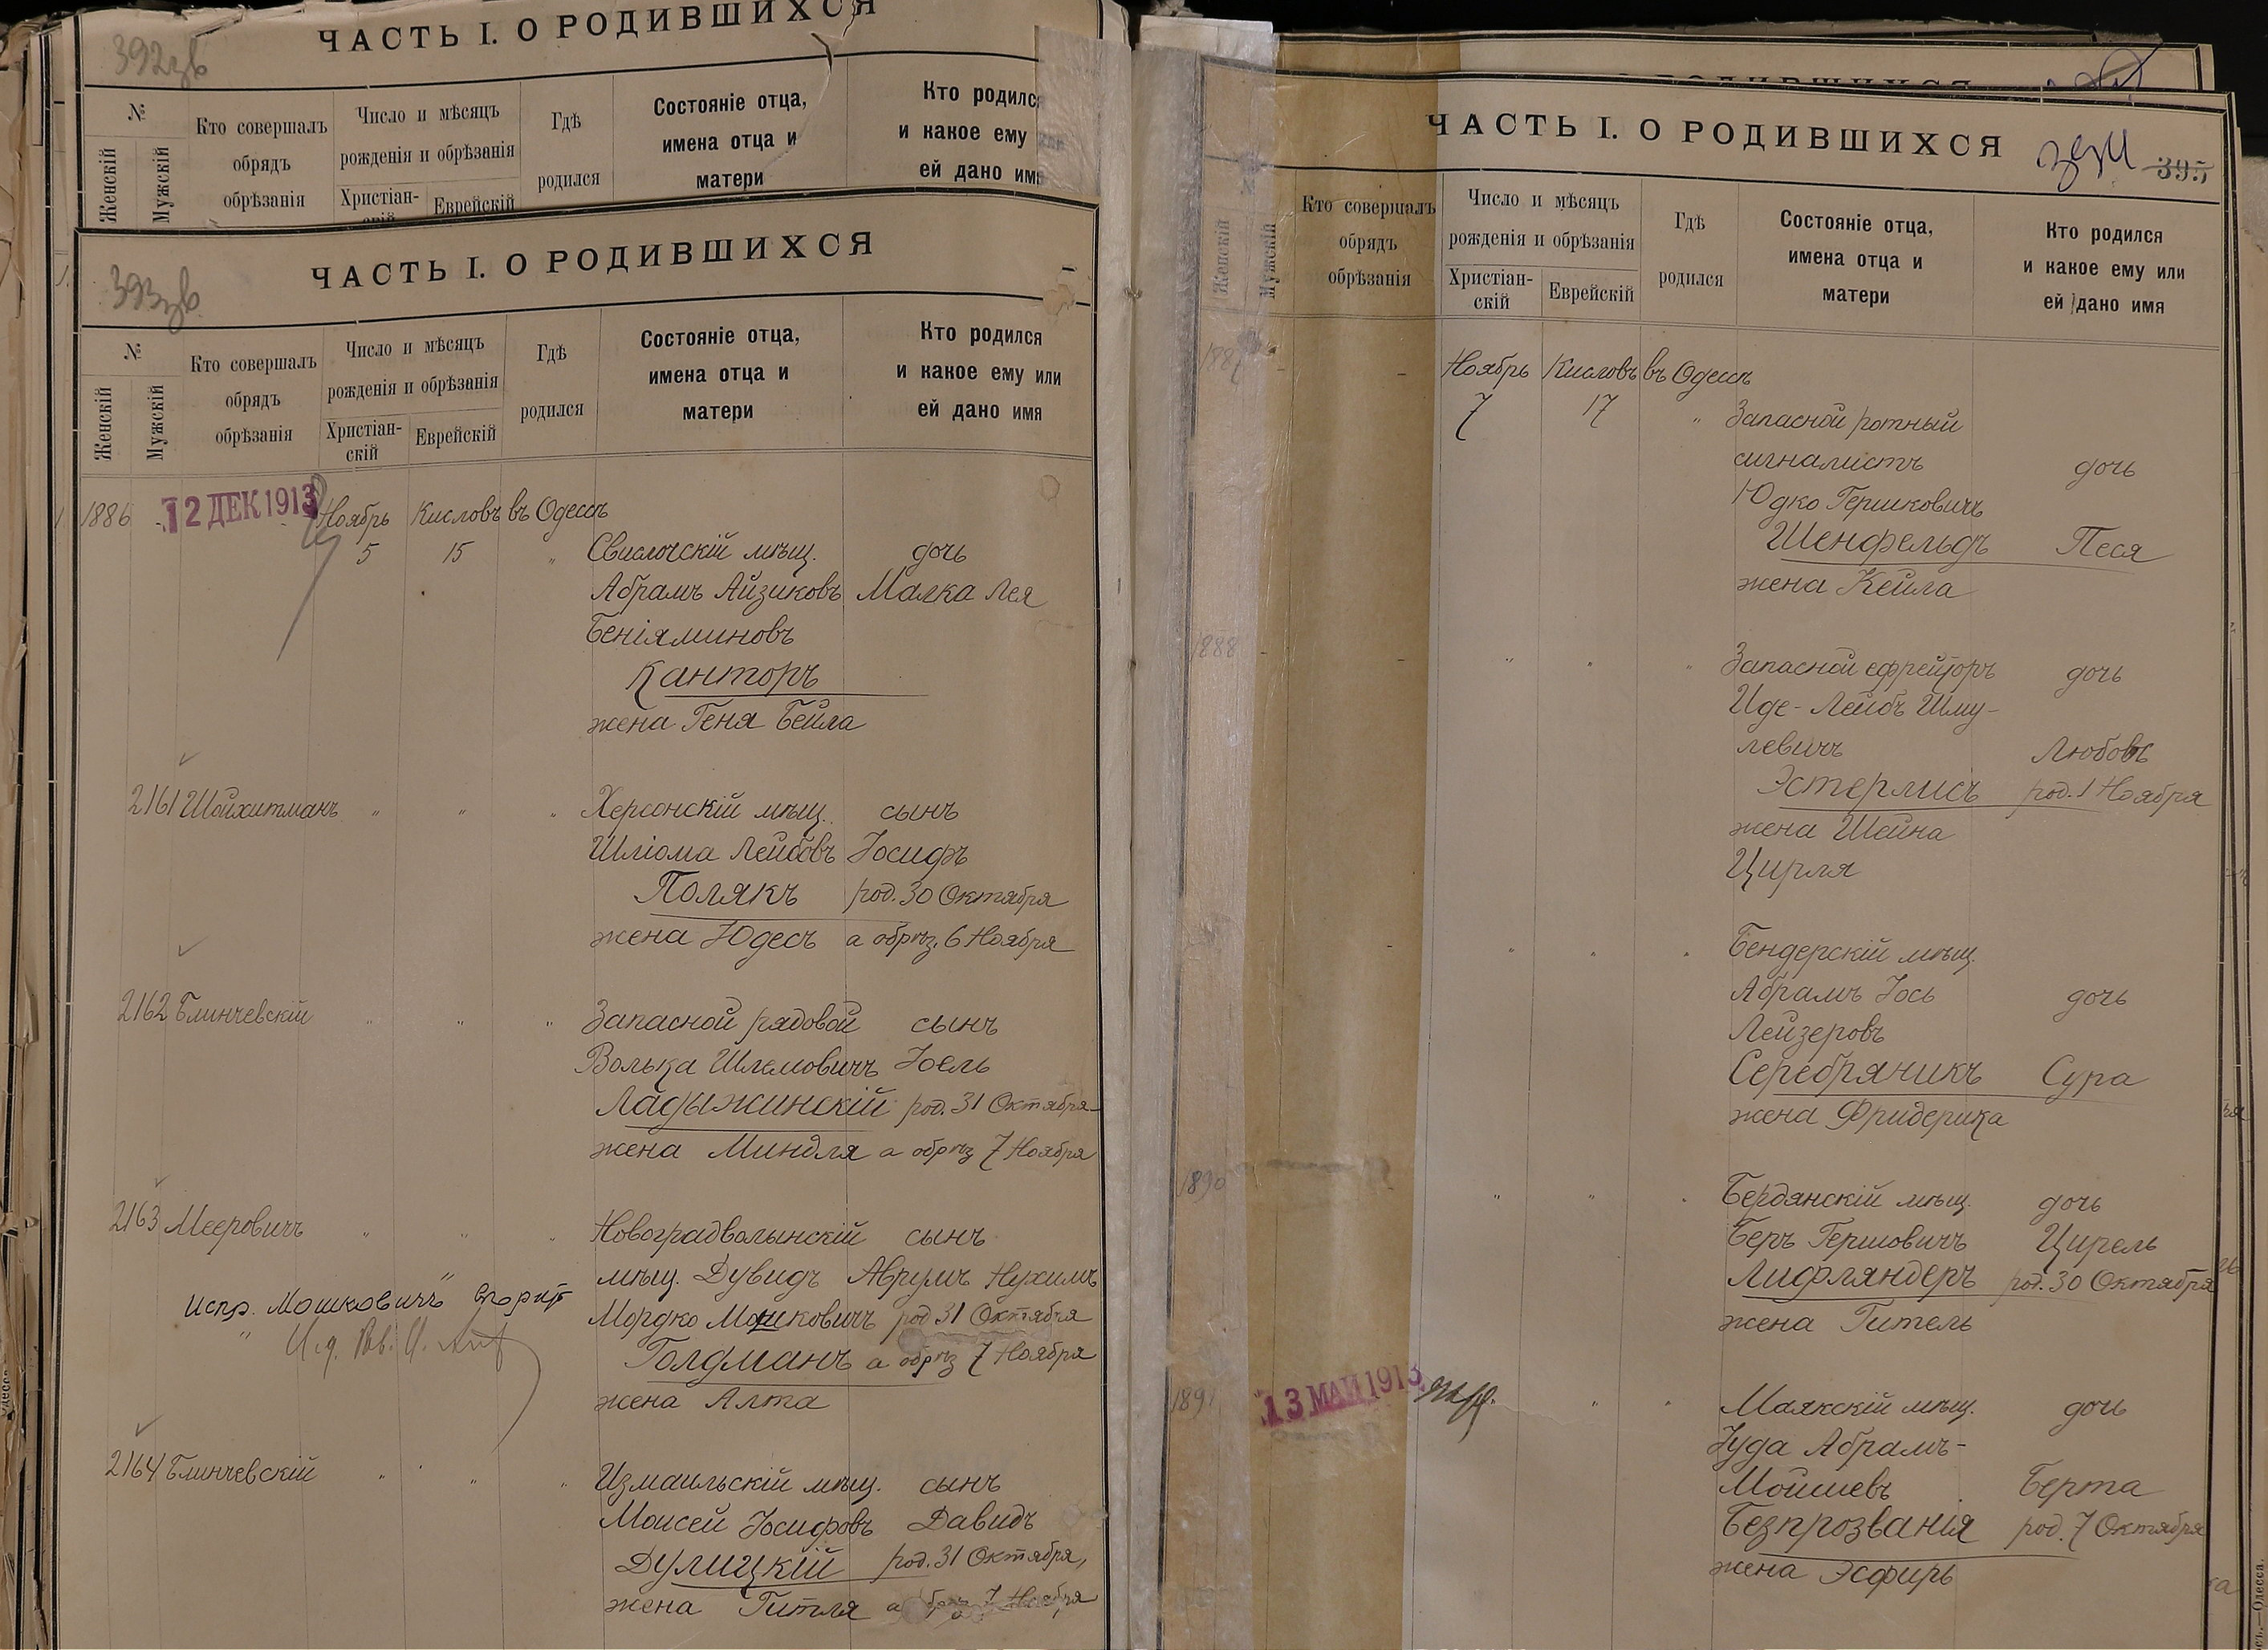 392зв
ЧАСТЬ I. О РОДИВШИХСЯ
№
Женскій
Мужскій
Кто совершалъ
обрядъ
обрѣзанія
Число и мѣсяцъ
рожденія и обрѣзанія
Христіан-
скій
Еврейскій
Гдѣ
родился
Состояніе отца,
имена отца и
матери
Кто родилс
и какое ему
ей дано им
393зв
ЧАСТЬ I. О РОДИВШИХСЯ
№
Женскій
Мужскій
Кто совершалъ
обрядъ
обрѣзанія
Число и мѣсяцъ
рожденія и обрѣзанія
Христіан-
скій
Еврейскій
Гдѣ
родился
Состояніе отца,
имена отца и
матери
Кто родился
и какое ему или
ей дано имя
1886 - 12 ДЕК 1913 Ноябрь Кисловъ въ Одессѣ
5 15 " Свислочскій мѣщ. дочь
Абрамъ Айзиковъ Малка Лея
Беніяминовъ
Канторъ
жена Геня Бейла
2161 Шойхитманъ " " " Херсонскій мѣщ. сынъ
Шліома Лейбовъ Іосифъ
Полякъ род. 30 Октября
жена Юдесь а обрѣз. 6 Ноября
2162 Блинчевскій " " " Запасной рядовой сынъ
Волька Шлемовичъ Іоель
Ладыжинскій род. 31 Октября
жена Миндля а обрѣз 7 Ноября
2163 Мееровичъ " " " Новоградволынскій сынъ
мѣщ. Дувидъ Аврумъ Нухимъ
Испр. Мошковичъ"
Мордко Мошковичъ род 31 Октября
Голдманъ а обрѣз 7 Ноября
жена Алта
2164 Блинчевскій " " " Измаильскій мѣщ. сынъ
Моисей Іосифовъ Давидъ
Дулицкій род. 31 Октября,
жена Гитля а обрѣз 7 Ноября
ЧАСТЬ I. О РОДИВШИХСЯ
394 395
№
Женскій
Мужскій
Кто совершалъ
обрядъ
обрѣзанія
Число и мѣсяцъ
рожденія и обрѣзанія
Христіан-
скій
Еврейскій
Гдѣ
родился
Состояніе отца,
имена отца и
матери
Кто родился
и какое ему или
ей дано имя
1887 - - Ноябрь Кисловъ въ Одессѣ
7 17 " Запасной ротный
сигналистъ дочь
Юдко Гершковичъ
Шенфельдъ Песя
жена Кейла
1888 - - " " " Запасной ефрейторъ дочь
Иде-Лейбъ Шму-
левичъ Любовь
Эстерлисъ род. 1 Ноября
жена Шейна
Цирля
- " " " Бендерскій мѣщ.
Абрамъ Іось дочь
Лейзеровъ
Серебряникъ Сура
жена Фридерика
1890 " " " Бердянскій мѣщ. дочь
Беръ Гершовичъ Цирель
Лифляндеръ род. 30 Октября
жена Гитель
1891 13 МАЙ 1913 " " Маякскій мѣщ. дочь
Іуда Абрамъ-
Мойшевъ Берта
Безпрозванія род. 7 Октября
жена Эсфирь